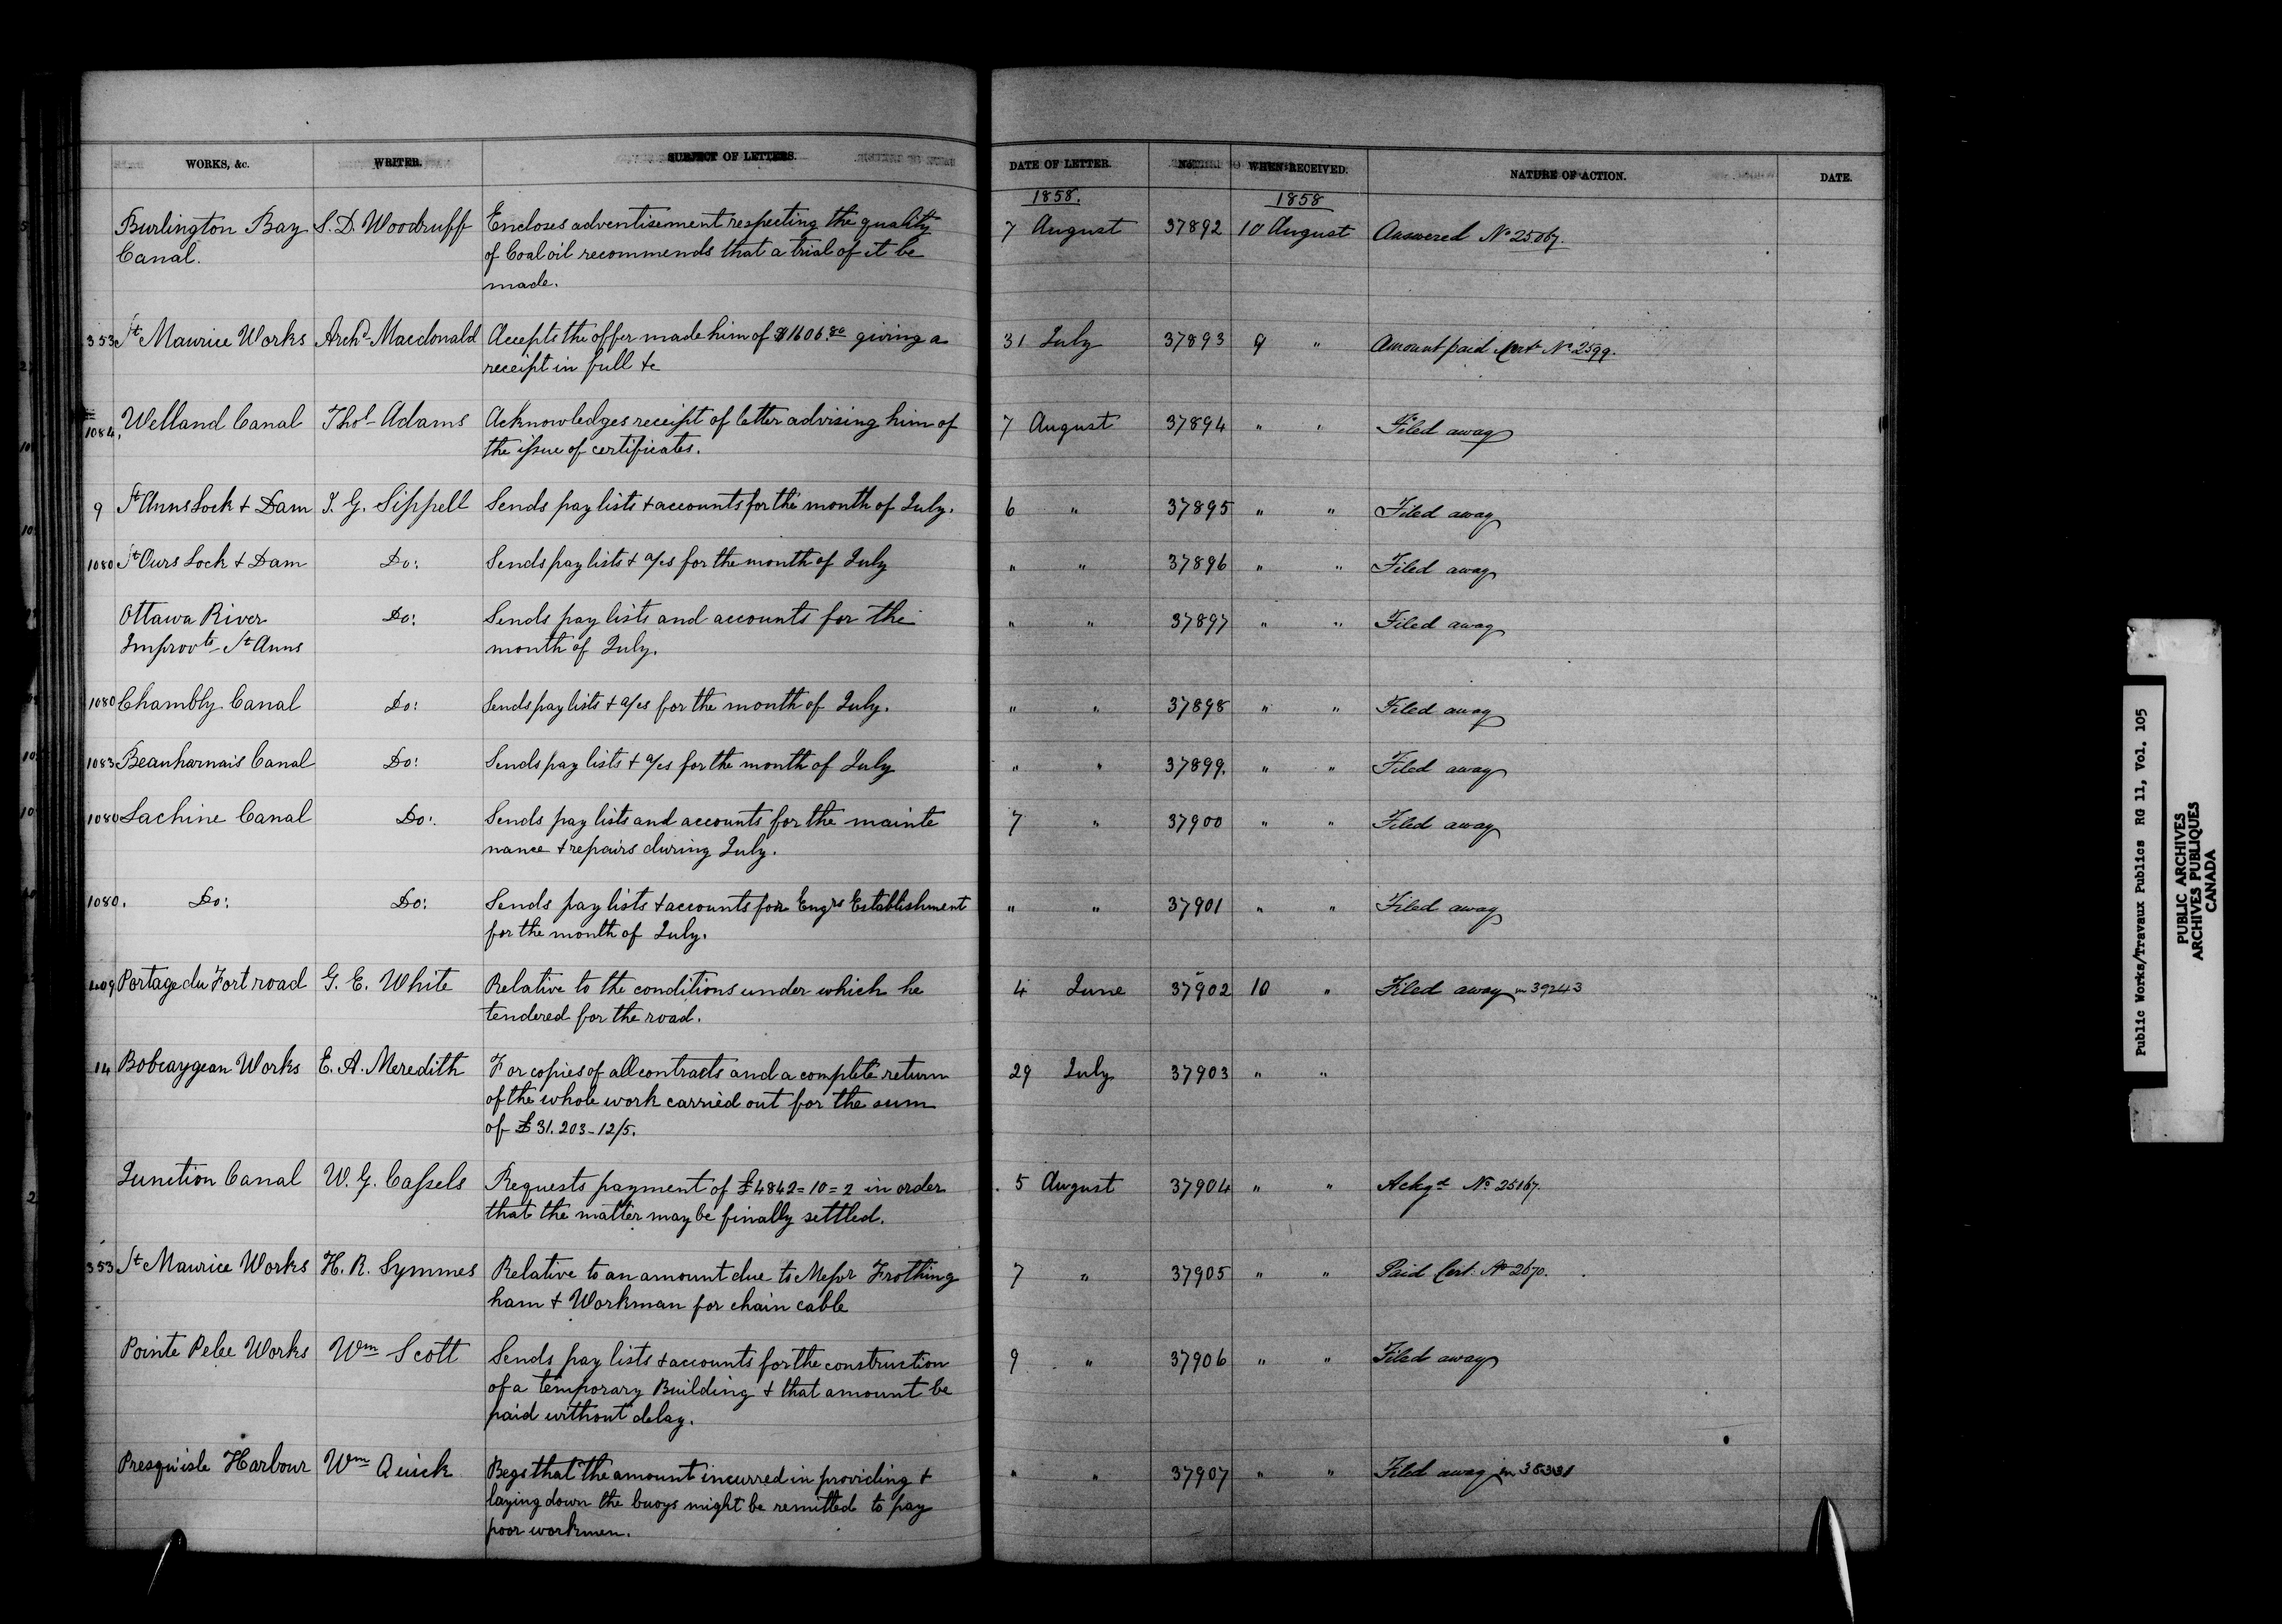 WORKS, &c. WRITER. SUBJECT OF LETTERS. DATE OF LETTER. No. WHEN RECEIVED. NATURE OF ACTION. DATE.
1858. 1858
Burlington Bay S. D. Woodruff Encloses advertisement respecting the quality 7 August 37892 10 August Answered No 25067.
Canal. of Coal oil recommends that a trial of it be
made.
353 St Maurice Works Archd Macdonald Accepts the offer made him of $1606.80 giving a 31 July 37893 9 " Amount paid Cert No 2599.
receipt in full &c
1084, Welland Canal Thos Adams Acknowledges receipt of letter advising him of 7 August 37894 " " Filed away
the issue of certificates.
9 St Anns Lock & Dam J. G. Sippell Sends pay lists & accounts for the month of July. 6 " 37895 " " Filed away
1080 St Ours Lock & Dam Do: Sends pay lists & a/cs for the month of July " " 37896 " " Filed away
Ottawa River Do: Sends pay lists and accounts for the " " 37897 " " Filed away
Improvts St Anns month of July.
1080 Chambly Canal Do: Sends pay lists & a/cs for the month of July. " " 37898 " " Filed away
1083 Beauharnais Canal Do: Sends pay lists & a/cs for the month of July " " 37899. " " Filed away
1080 Lachine Canal Do: Sends pay lists and accounts for the mainte 7 " 37900 " " Filed away
nance & repairs during July.
1080. Do: Do: Sends pay lists & accounts for Engrs Establishment " " 37901 " " Filed away
for the month of July.
409 Portage du Fort road G. E. White Relative to the conditions under which he 4 June 37902 10 " Filed away in 39243
tendered for the road.
14 Bobcaygean Works E. A. Meredith For copies of all contracts and a complete return 29 July 37903 " "
of the whole work carried out for the sum
of £31.203-12/5.
Junction Canal W. G. Cassels Requests payment of £4842=10=2 in order 5 August 37904 " " Ackgd No 25167.
that the matter may be finally settled.
353 St Maurice Works H. R. Symmes Relative to an amount due to Messr Frothing 7 " 37905 " " Paid Cert. No 2670.
ham & Workman for chain cable
Pointe Pelee Works Wm Scott Sends pay lists & accounts for the construction 9 " 37906 " " Filed away
of a temporary Building & that amount be
paid without delay.
Presqu'isle Harbour Wm Quick Begs that the amount incurred in providing & " " 37907 " " Filed away in 38331
laying down the buoys might be remitted to pay
poor workmen.
Public Works/Travaux Publics RG 11, Vol. 105
PUBLIC ARCHIVES
ARCHIVES PUBLIQUES
CANADA